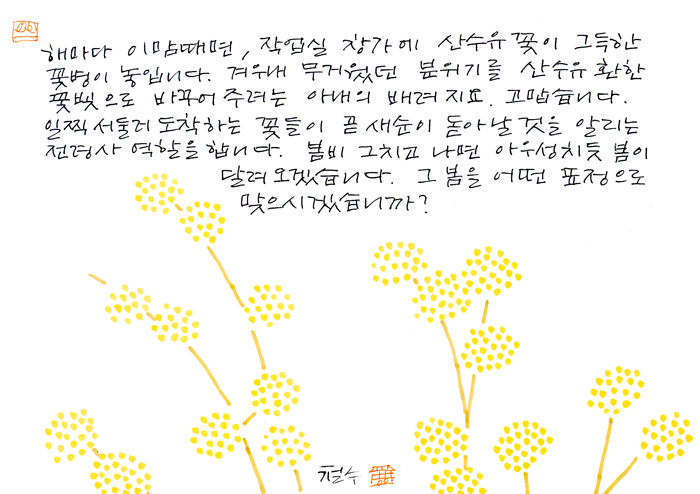 해마다 이맘때면, 작업실 창가에 산수유 꽃이 그득한
꽃병이 놓입니다. 겨우내 무거웠던 분위기를 산수유 환한
꽃빛으로 바꾸어 주려는 아내의 배려지요. 고맙습니다.
일찍 서둘러 도착하는 꽃들이 곧 새순이 돋아날 것을 알리는
전령사 역할을 합니다. 봄비 그치고 나면 아우성치듯 봄이
달려 오겠습니다. 그 봄을 어떤 표정으로
맞으시겠습니까?
철수